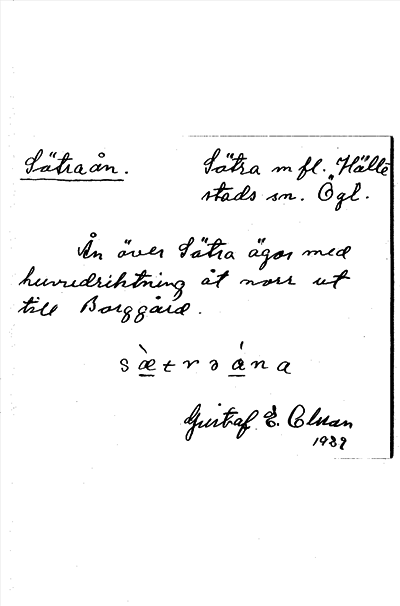 Sätraån.
Sätra m fl. Hälle-
stads sn. Ögl.
Ån över Sätra ägor med
huvudriktning åt norr ut
till Borggård.
s æ̀ t r ə á n a
Gustaf E.
1939